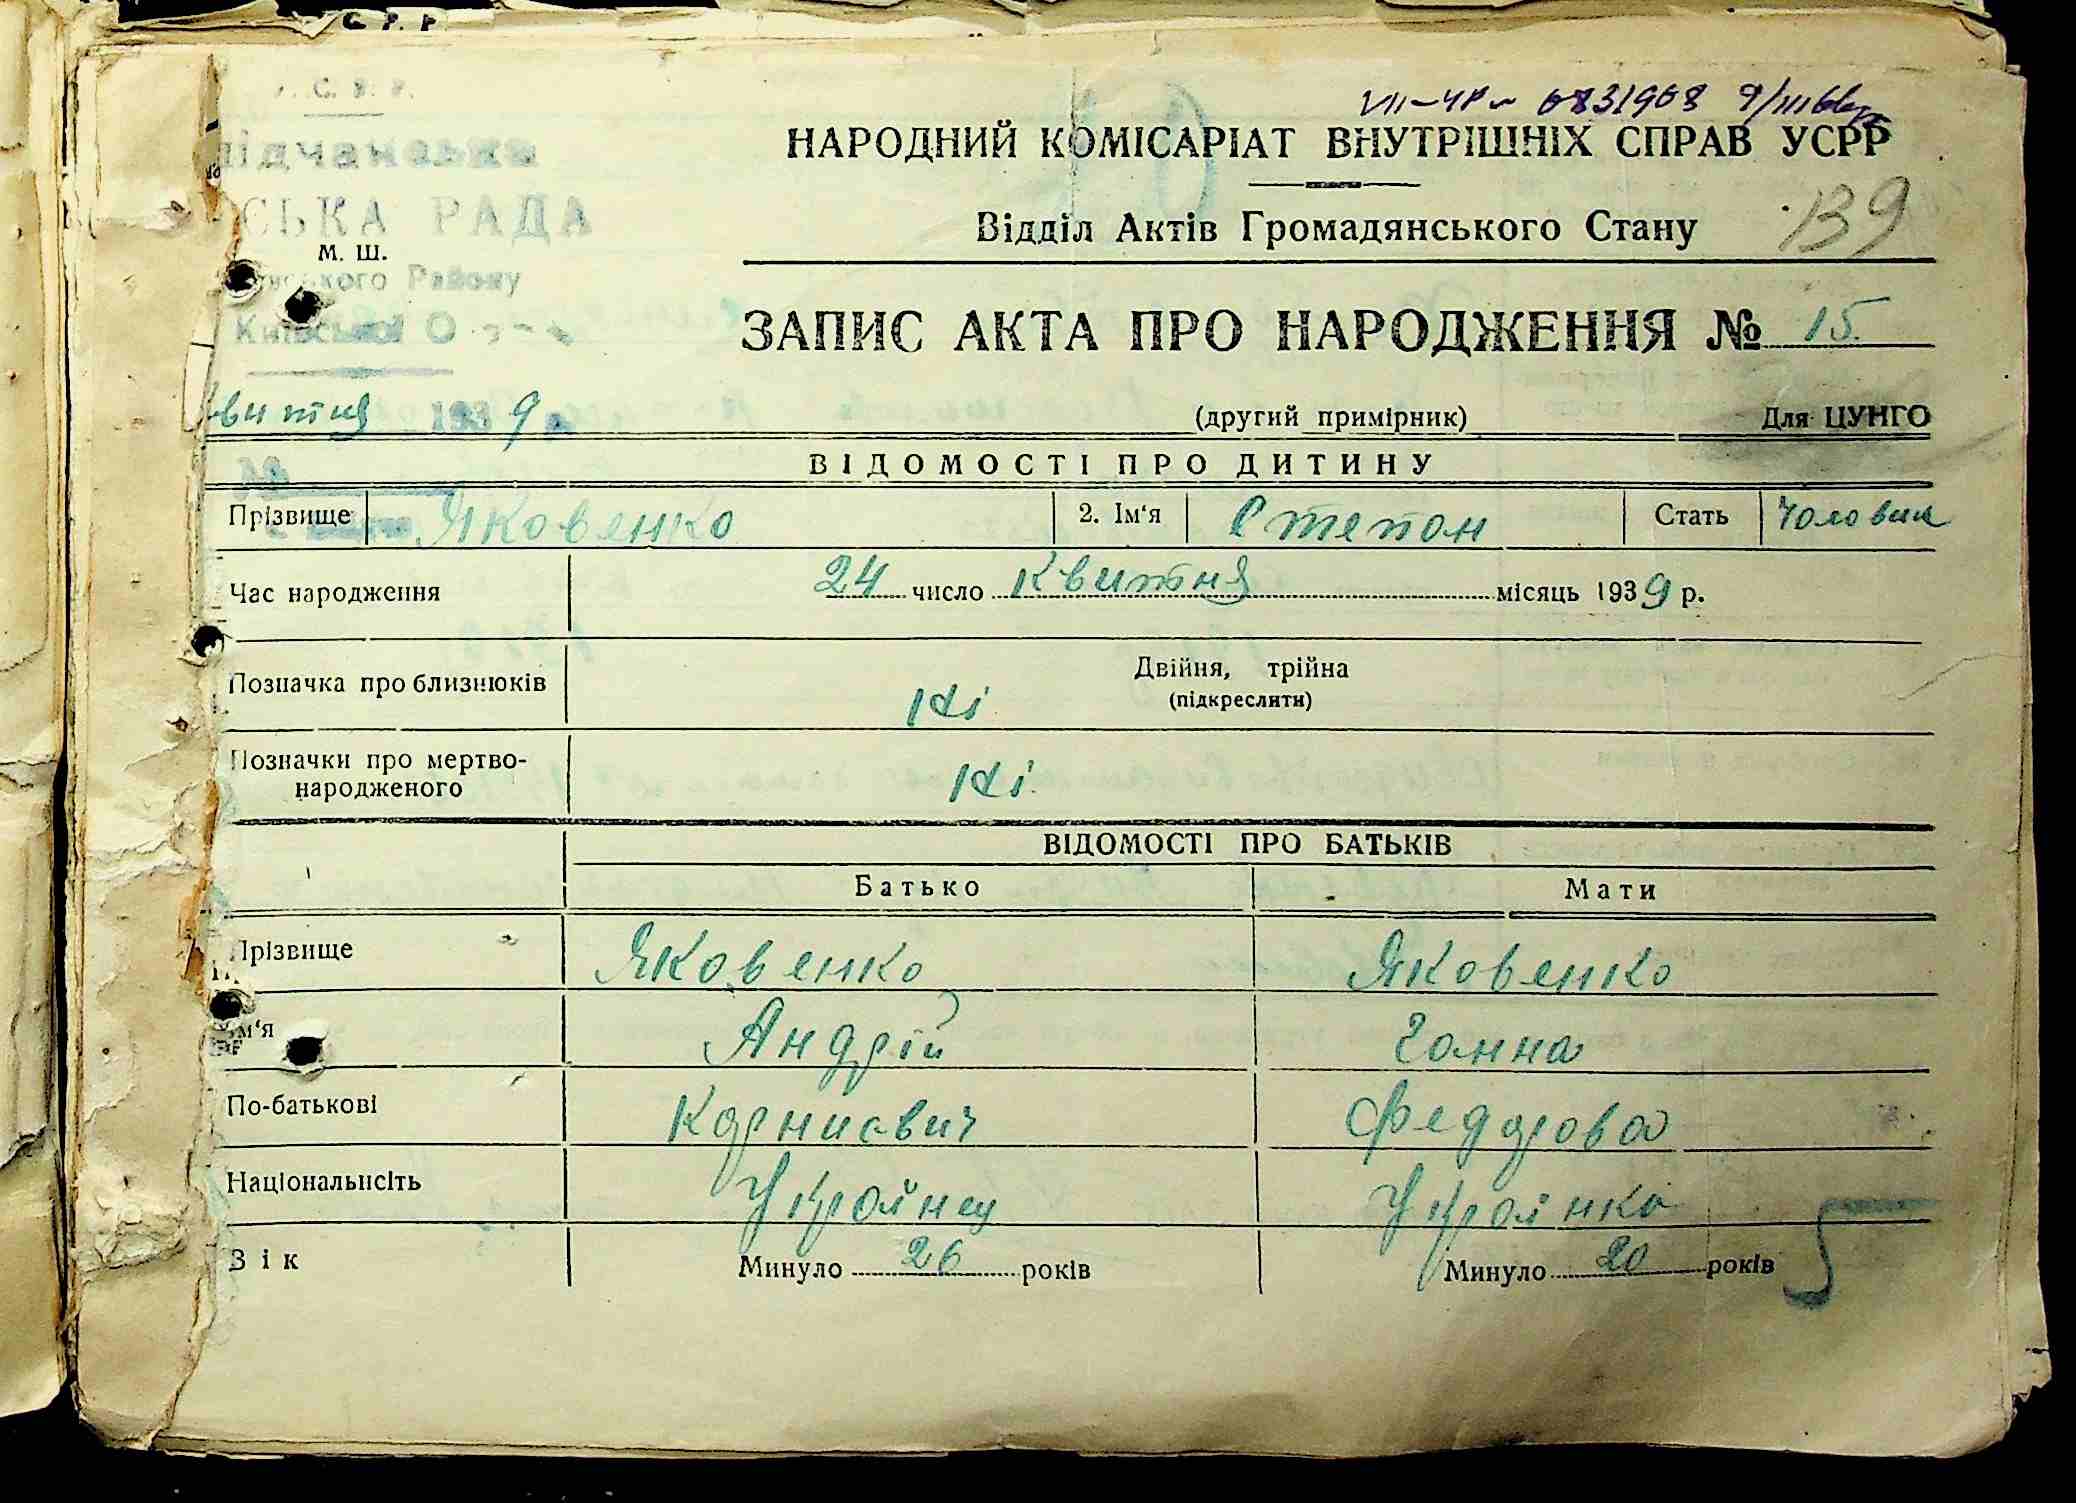 С. Р. Р.
С. Р. Р.
ідчанська
СЬКА РАДА
М. Ш.
ського Району
Київської О
9/III
НАРОДНИЙ КОМІСАРІАТ ВНУТРІШНІХ СПРАВ УСРР
Відділ Актів Громадянського Стану
139
ЗАПИС АКТА ПРО НАРОДЖЕННЯ № 15
витня 1939 р.
(другий примірник)
Для ЦУНГО
ВІДОМОСТІ ПРО ДИТИНУ
Прізвище Яковенко 2. Ім'я Степан Стать Чоловіч
Час народження 24 число Квитня місяць 1939 р.
Позначка про близнюків Ні Двійня, трійна
(підкреслити)
Позначки про мертво-
народженого Ні
ВІДОМОСТІ ПРО БАТЬКІВ
Батько Мати
Прізвище Яковенко Яковенко
м'я Андрій Ганна
По-батькові Корниєвич Федорова
Національнсіть Украйнец Украінка
Вік Минуло 26 років Минуло 20 років
5